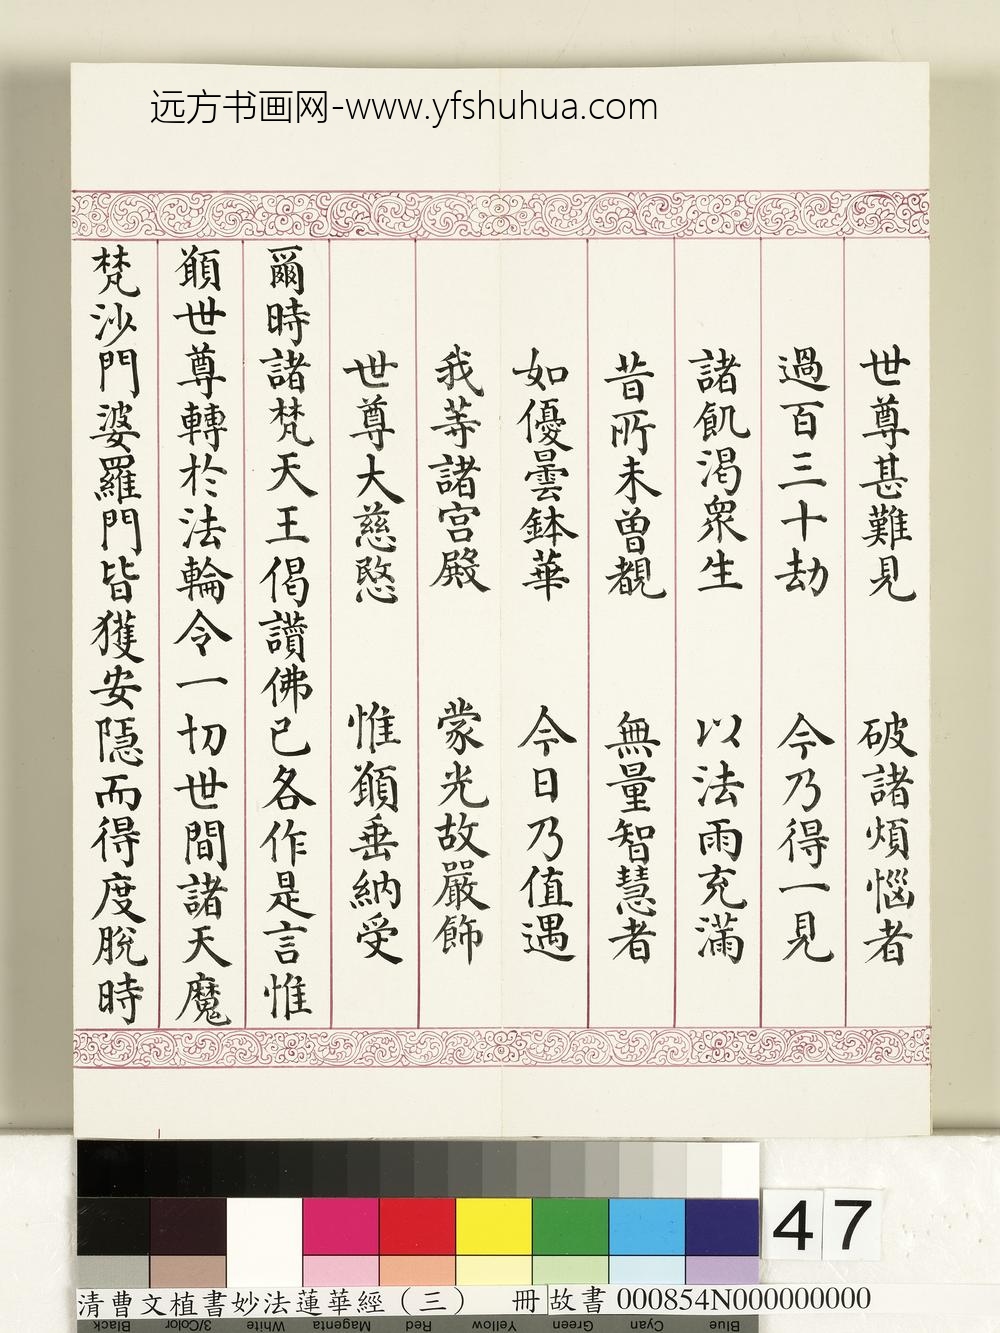 远方书画网-www.yfshuhua.com
世尊甚難見　破諸煩惱者
過百三十劫　今乃得一見
諸飢渴眾生　以法雨充滿
昔所未曾覩　無量智慧者
如優曇鉢華　今日乃值遇
我等諸宮殿　蒙光故嚴飾
世尊大慈愍　惟願垂納受
爾時諸梵天王偈讚佛已各作是言惟
願世尊轉於法輪令一切世間諸天魔
梵沙門婆羅門皆獲安隱而得度脫時
47
清曹文植書妙法蓮華經（三）　冊 故書 000854N000000000
Black 3/Color White Magenta Red Yellow Green Cyan Blue